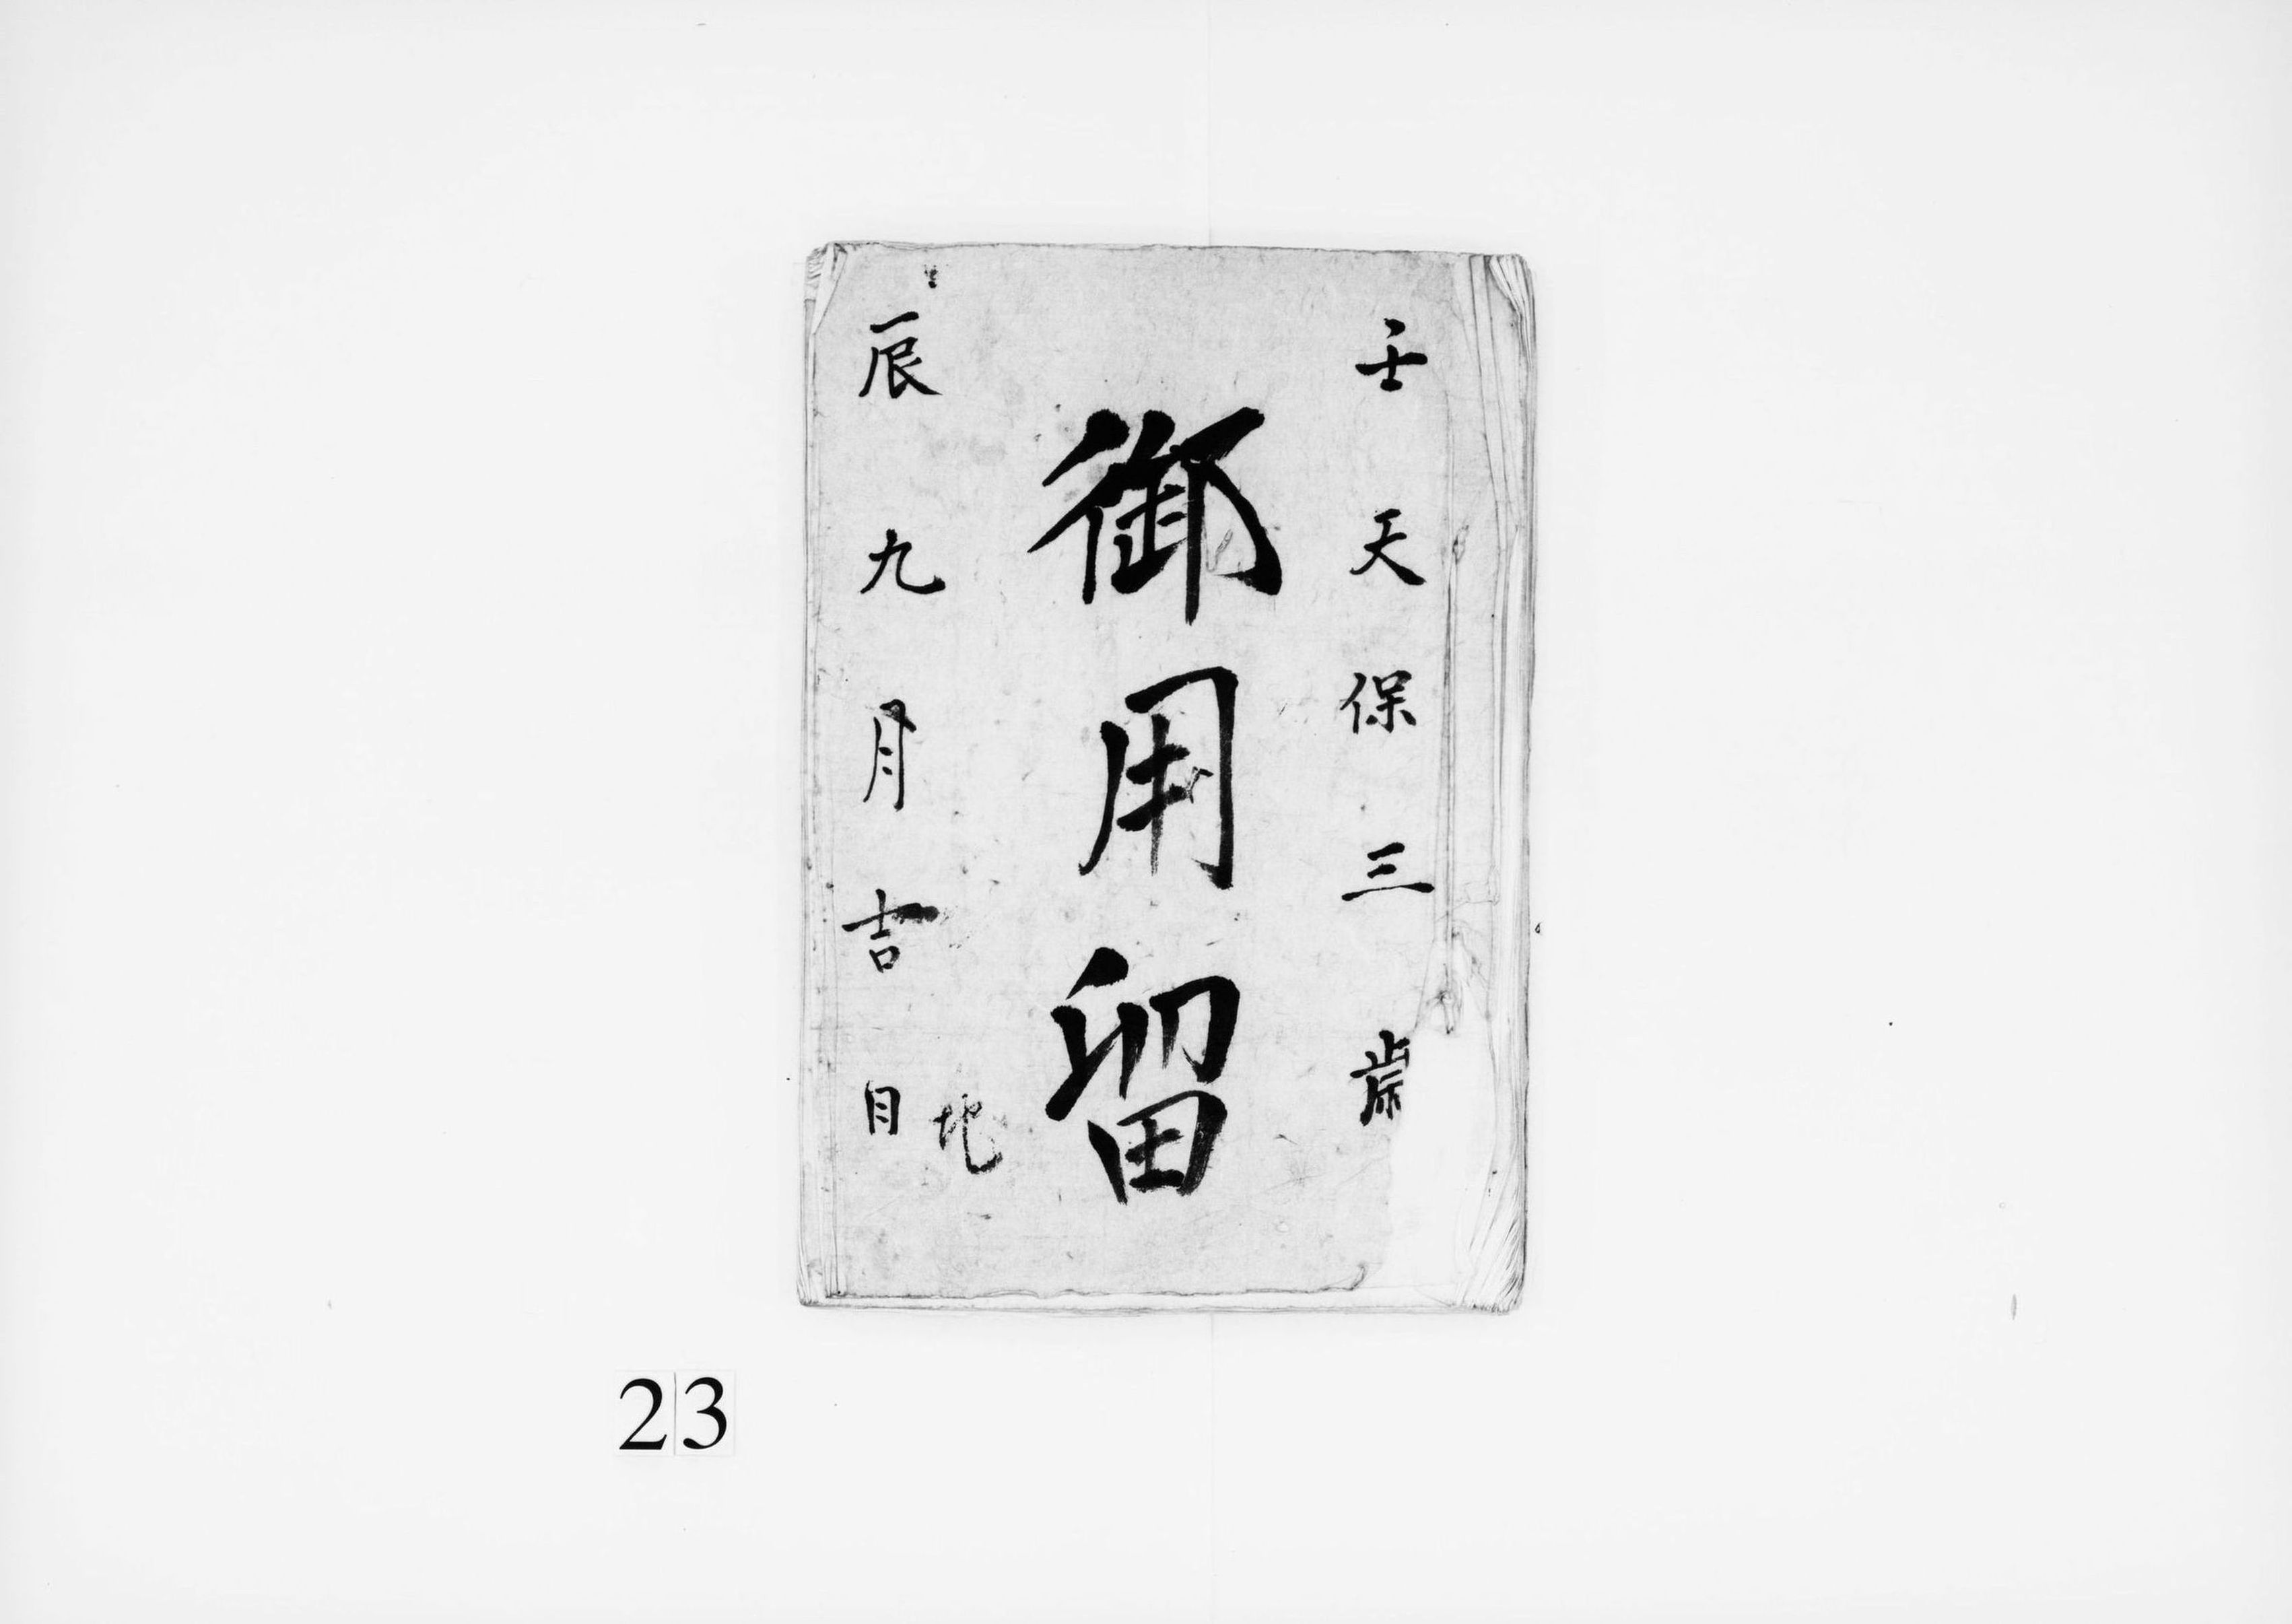 壬天保三歳
御用留
地
辰九月吉日
23